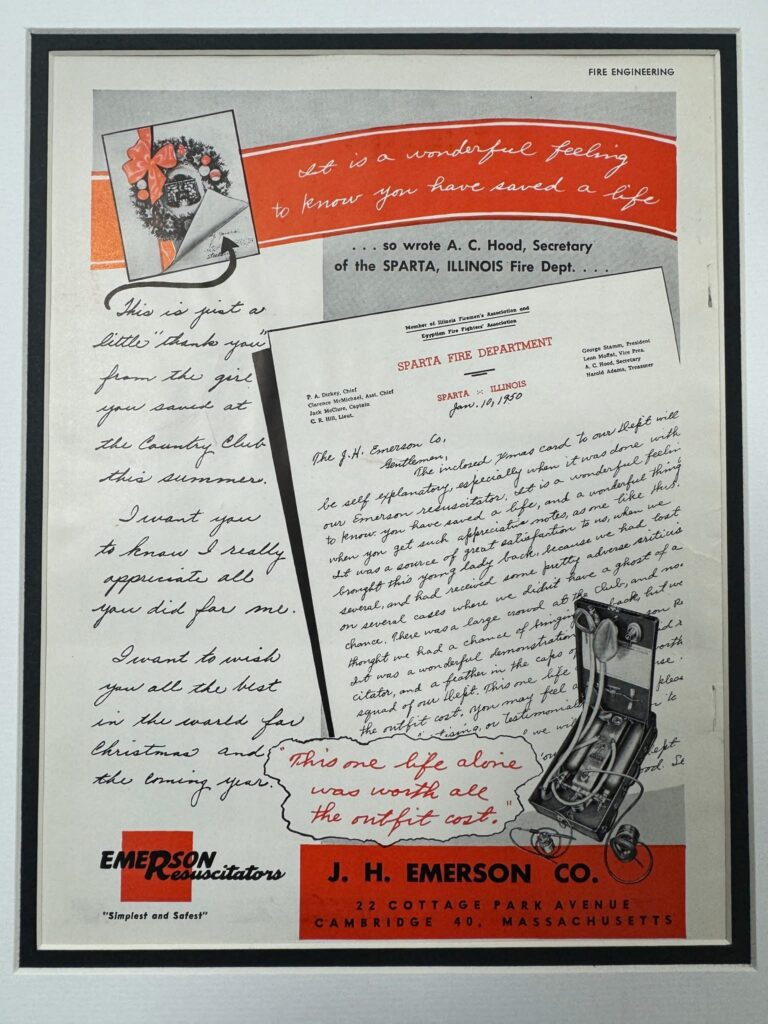 FIRE ENGINEERING
It is a wonderful feeling
to know you have saved a life
. . . so wrote A. C. Hood, Secretary
of the SPARTA, ILLINOIS Fire Dept. . . .
This is just a
little "thank you"
from the girl
you saved at
the Country Club
this summer.
I want you
to know I really
appreciate all
you did for me.
I want to wish
you all the best
in the world for
Christmas and
the coming year.
Member of Illinois Firemen's Association and
Egyptian Fire Fighters' Association
SPARTA FIRE DEPARTMENT
P. A. Dickey, Chief
Clarence McMichael, Asst. Chief
Jack McClure, Captain
C. R. Hill, Lieut.
George Stamm, President
Leon Moffat, Vice Pres.
A. C. Hood, Secretary
Harold Adams, Treasurer
SPARTA :-: ILLINOIS
Jan. 10, 1950
The J. H. Emerson Co,
Gentlemen,
The inclosed Xmas card to our Dept will
be self explanatory, especially when it was done with
our Emerson resuscitator. It is a wonderful feelin
to know you have saved a life, and a wonderful thing
when you get such appreciative notes, as one like this.
It was a source of great satisfaction to us, when we
brought this young lady back, because we had lost
several, and had received some pretty adverse criticis
on several cases where we didn't have a ghost of a
chance. There was a large crowd at the Club, and no
thought we had a chance of bringing back, but we
It was a wonderful demonstration son Re
citator, and a feather in the caps o
squad of our Dept. This one life worth
the outfit cost. You may feel use
tising, or testimonial pleas
we wi to
ept
ood. Se
"This one life alone
was worth all
the outfit cost."
EMERSON
Resuscitators
"Simplest and Safest"
J. H. EMERSON CO.
22 COTTAGE PARK AVENUE
CAMBRIDGE 40, MASSACHUSETTS